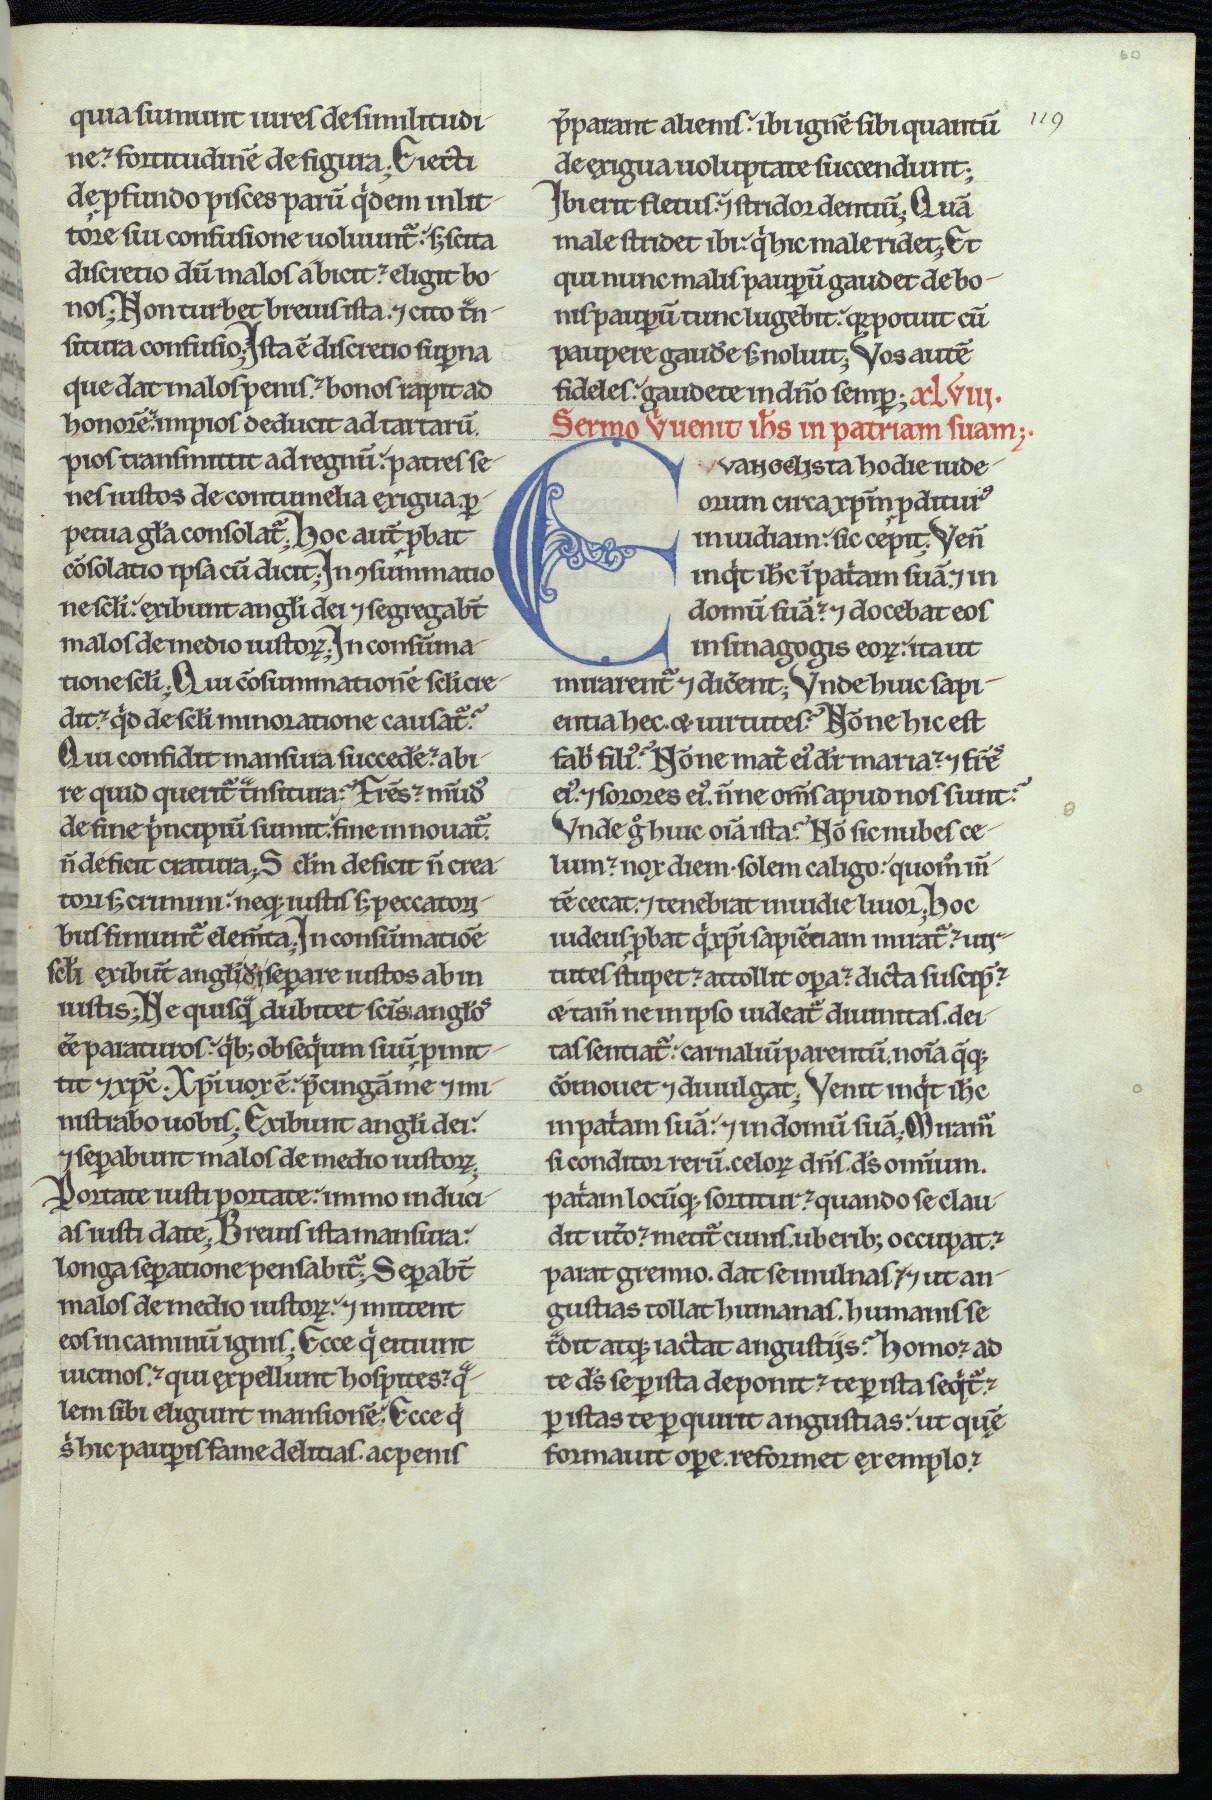 60
119
quia sumunt uires de similitudi-
ne? fortitudinē de figura; Eiecti
de pfundo pisces parū q'dem in lit-
tore sui confusione uoluunt᷑: s; scita
discretio dū malos abicit? eligit bo-
nos; Non turbet breuis ista ⁊ cito tn̄-
situra confusio; Ista ē discretio sup̄na
que dat malos penis? bonos rapit ad
honorē: impios deducit ad tartarū.
pios transmittit ad regnū: patres se-
nes iustos de contumelia exigua. p̄-
petua gl'a consolat᷑; hoc aut̄ pbat
cōsolatio ipsa cū dicit; In ꝯsummatio
ne scl'i: exibunt angl'i dei ⁊ segregabt̄
malos de medio iustoꝝ; In consūma-
tione scl'i; Qui cōsummationē scl'i cre-
dit? q'd de scl'i minoratione causat᷑?
Qui confidit mansura succedē? abi-
re quid querit᷑ tn̄situra? Fr̄es? mūdꝰ
de fine p'ncipiū sumit: fine innouat᷑.
n̄ deficit cratura; S clm̄ deficit n̄ crea-
tori s; crimini: neqꝫ iustis s; peccatori-
bus finiunt᷑ elem̄ta; In consūmatiōe
scl'i exibūt angl'i di ⁊ separe iustos ab in
iustis; Ne quisq̄ dubitet scīs anglōs
ēē paraturos: q'b; obseq'um suū pmit-
tit ⁊ xp̄c. Xp̄i uox ē: p̄cingā me ⁊ mi-
nistrabo uobis; Exibunt angl'i dei:
⁊ sepabunt malos de medio iustoꝝ;
Portate iusti portate: immo induci-
as iusti date; Breuis ista mansura:
longa sepatione pensabit᷑; Sepabt̄
malos de medio iustoꝝ: ⁊ mittent
eos in caminū ignis; Ecce q' eitiunt
uicinos? qui expellunt hospites? q̄-
lem sibi eligunt mansionē; Ecce q'
s' hic paupis fame delitias. ac penis
p̄parant alienis: ibi ignē sibi quantū
de exigua uoluptate succendunt;
Ibi erit fletus: ⁊ stridor dentiū; Quā
male stridet ibi: q' hic male ridet; Et
qui nunc malis paupū gaudet de bo-
nis paupū tunc lugebit: qꝫ potuit cū
paupere gaudē s; noluit; Vos autē
fideles: gaudete in dn̄o semp; xlviii.
Sermo ū uenit ih̄s in patriam suam;
Evangelista hodie iude-
orum circa xp̄m pdituri
inuidiam: sic cepit; Ven̄
inq't ih̄c ī pat'am suā: ⁊ in
domū suā? ⁊ docebat eos
in sinagogis eoꝝ: ita ut
mirarent᷑ ⁊ dicēent; Vnde huic sapi-
entia hec. & uirtutes? Nōne hic est
fab' filiꝰ? Nōne mat' eiꝰ dr̄ maria? ⁊ fr̄es
eiꝰ. ⁊ sorores eiꝰ. n̄ne om̄s apud nos sunt?
Vnde g° huic oīa ista? Nō sic nubes ce-
lum? nox diem. solem caligo: quom° m̄-
tē cecat. ⁊ tenebrat inuidie liuor; hoc
iudeus pbat q' xp̄i sapiētiam mirat᷑? uir-
tutes stupet? attollit opa? dicta suscip̄?
& tam̄ ne in ipso uideat᷑ diuinitas. dei-
tas sentiat᷑: carnaliū parentū. noīa q̄qꝫ
cōmouet ⁊ diuulgat; Venit inq't ih̄c
in pat'am suā: ⁊ in domū suā; Miram̄
si conditor rerū. celoꝝ dn̄s. d̄s omium.
pat'am locūqꝫ sortitur? quando se clau-
dit ut°o? metit᷑ cunis. uberib; occupat?
parat gremio. dat se in ulnas? ⁊ ut an-
gustias tollat humanas. humanis se
t'dit atqꝫ iactat angustijs? homo? ad
te d̄s se p ista deponit? te p ista seq't᷑?
p istas te pquirit angustias: ut quē
formauit ope. reformet exemplo?